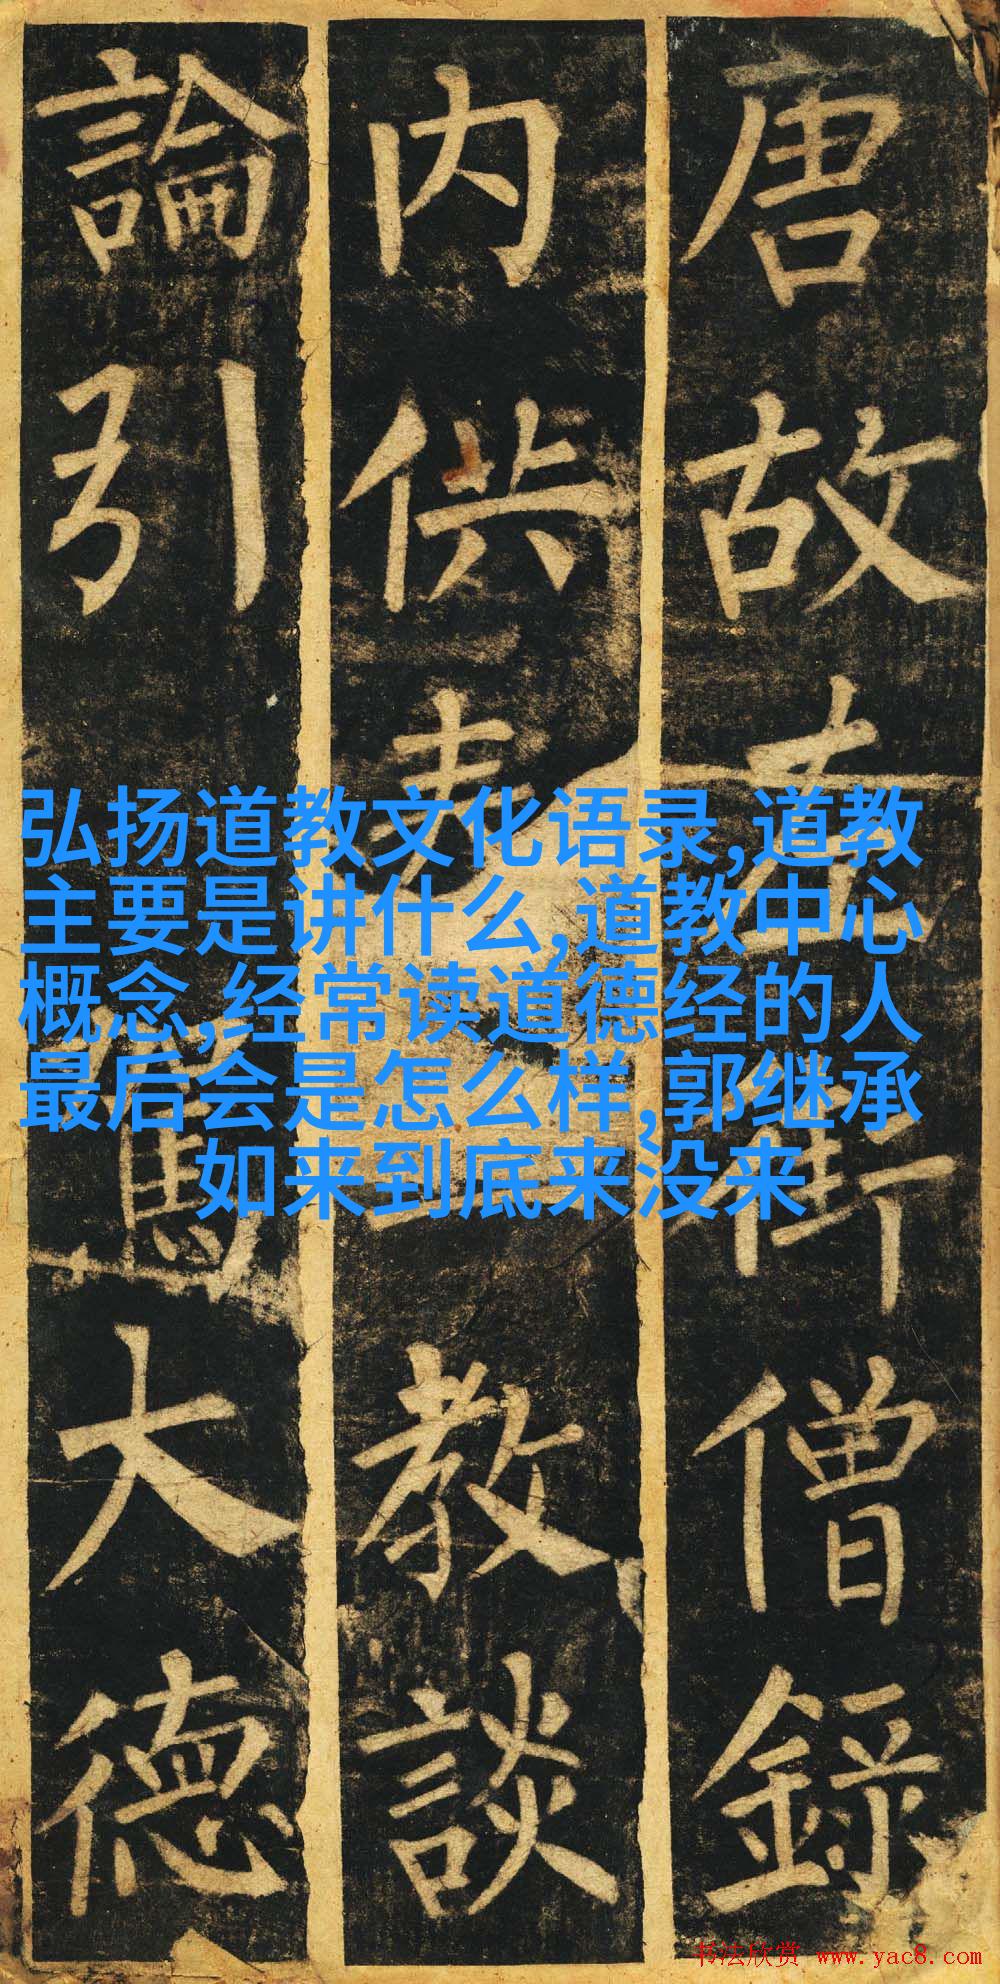 唐故左街僧錄
内供奉教談
論引駕大德
弘扬道教文化语录,道教
主要是讲什么,道教中心
概念,经常读道德经的人
最后会是怎么样,郭继承
如来到底来没来
书法欣赏 www.yac8.com